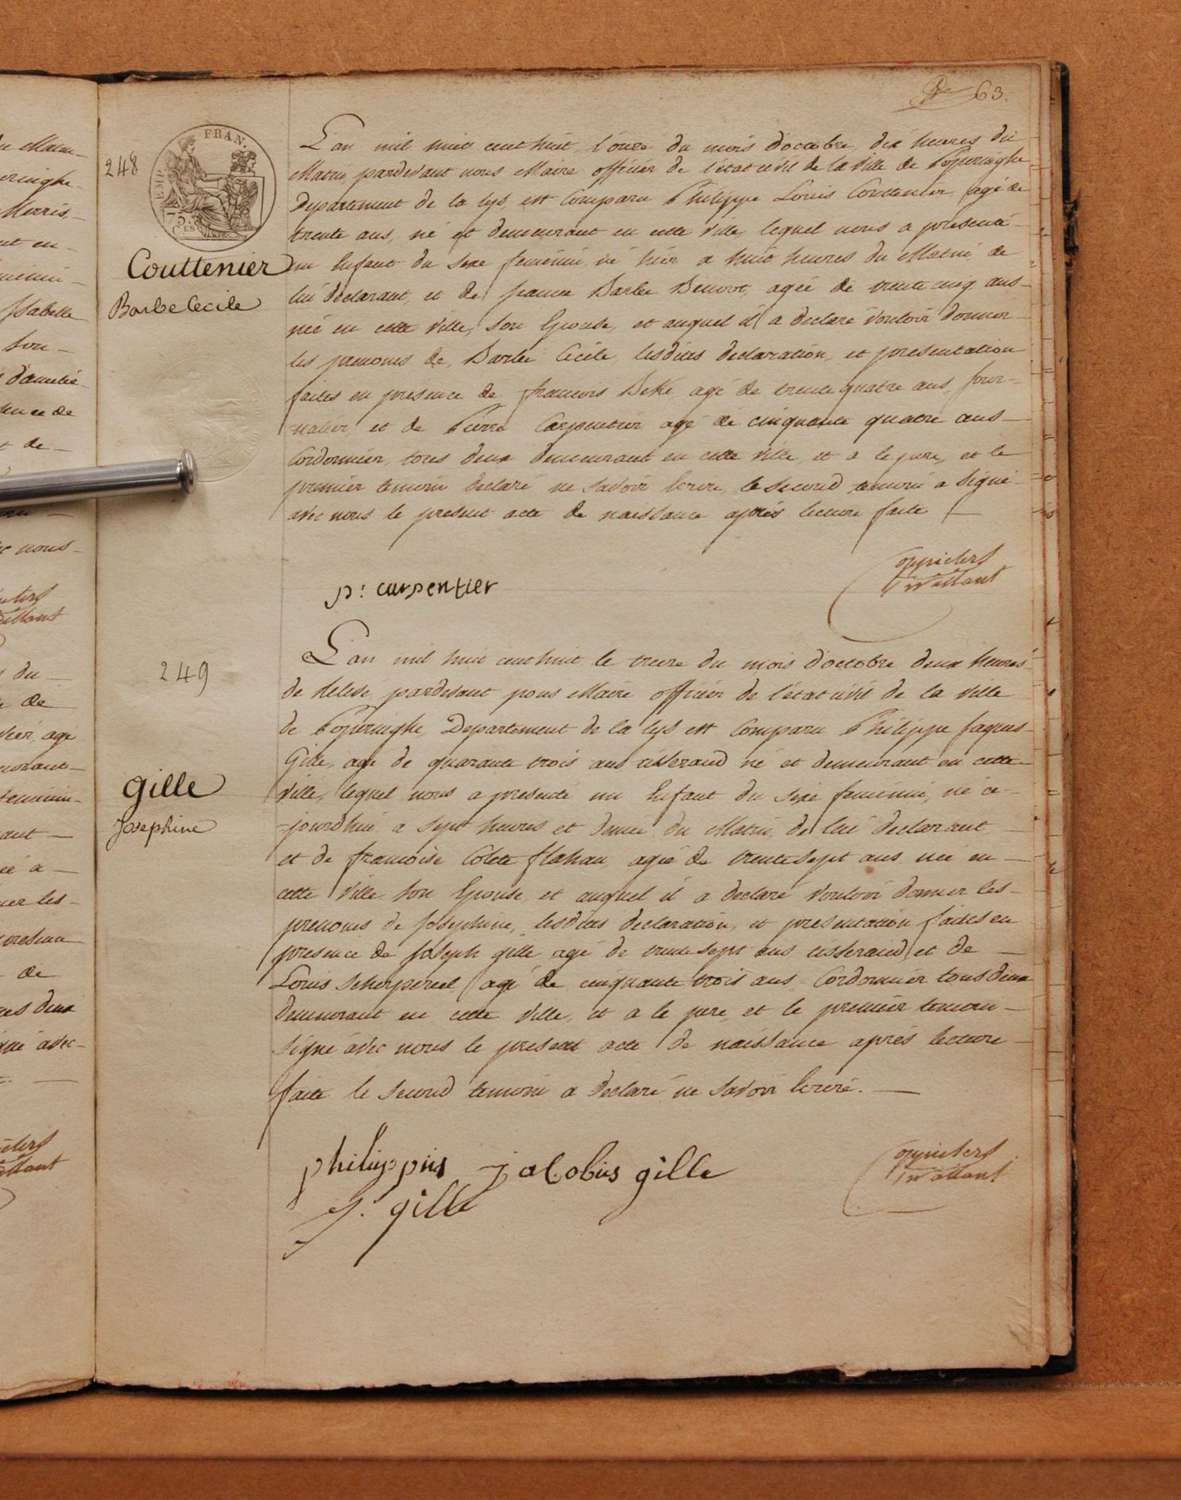 63.
248
EMP. FRAN.
75
Couttenier
Barbe Cecile
L'an mil huit cent huit, l'onze du mois d'octobre, dix heures du
Matin, pardevant nous Maire officier de l'état civil de la Ville de Poperinghe
Departement de la Lys est Comparu Philippe Louis Couttenier agé de
trente ans, né et demeurant en cette Ville lequel nous a presenté
un Enfant du Sexe feminin né hier a huit heures du Matin, de
lui declarant, et de Barbe agée de trente cinq ans
née en cette Ville, son Epouse, et auquel il a declaré vouloir donner
les prenoms de, Barbe Cecile, lesdites declaration, et presentation
faites en presence de francois agé de trente quatre ans,
et de Pierre Carpentier agé de cinquante quatre ans
Cordonnier, tous deux demeurant en cette Ville, et a le pere, et le
premier temoin declaré ne savoir Ecrire, le second temoin a signé
avec nous le present acte de naissance après lecture faite
p: carpentier
249
gille
Josephine
L'an mil huit cent huit le treize du mois d'octobre deux heures
de relevé, pardevant nous Maire officier de l'état civil de la Ville
de Poperinghe, Departement de la Lys est Comparu Philippe Jaques
Gille, agé de quarante trois ans tisserand né et demeurant en cette
Ville, lequel nous a presenté un Enfant du Sexe feminin, né ce
jourdhui, a sept heures et demie, du Matin, de lui declarant
et de francoise Colete flahau agée de trente sept ans née en
cette Ville son Epouse, et auquel il a declaré vouloir donner les
prenoms de Josephine, lesdites declaration, et presentation faites en
presence de Joseph gille agé de trente sept ans tisserand, et de
Louis Scherpereel agé de cinquante trois ans Cordonnier tous deux
demeurant en cette Ville, et a le pere, et le premier temoin
signé avec nous le present acte de naissance après lecture
faite le second temoin a declaré ne savoir Ecrire.
philippus jacobus gille
j. gille